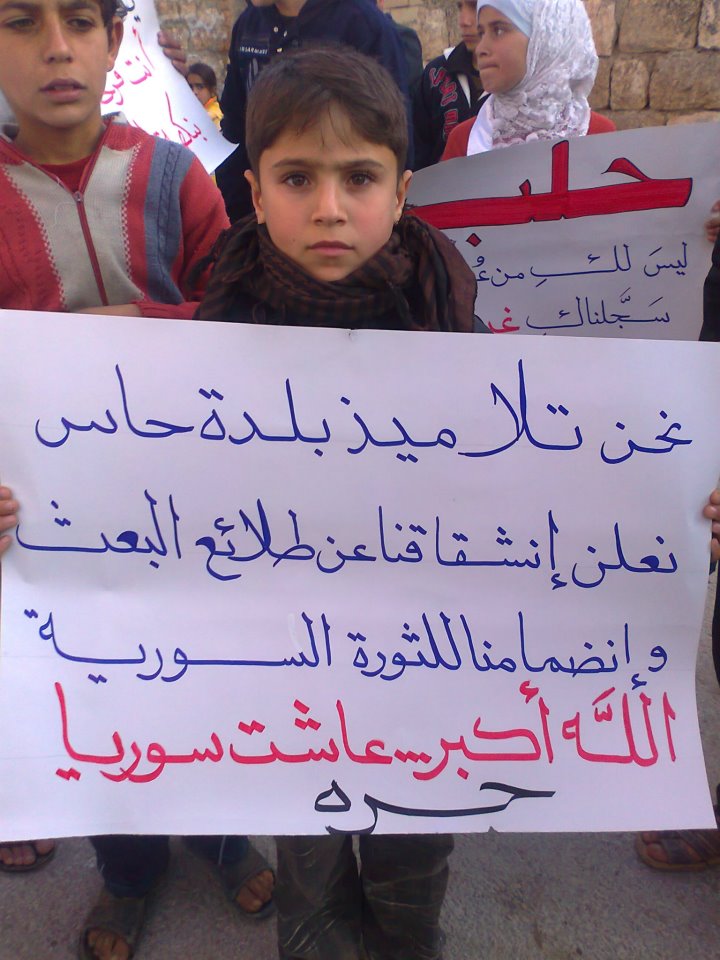 نحن تلاميذ بلدة حاس
نعلن إنشقاقنا عن طلائع البعث
وإنضمامنا للثورة السورية
اللَّه أكبر... عاشت سوريا
حره
حلب
ليسَ لكِ من
سَجَّلناكِ
أنت